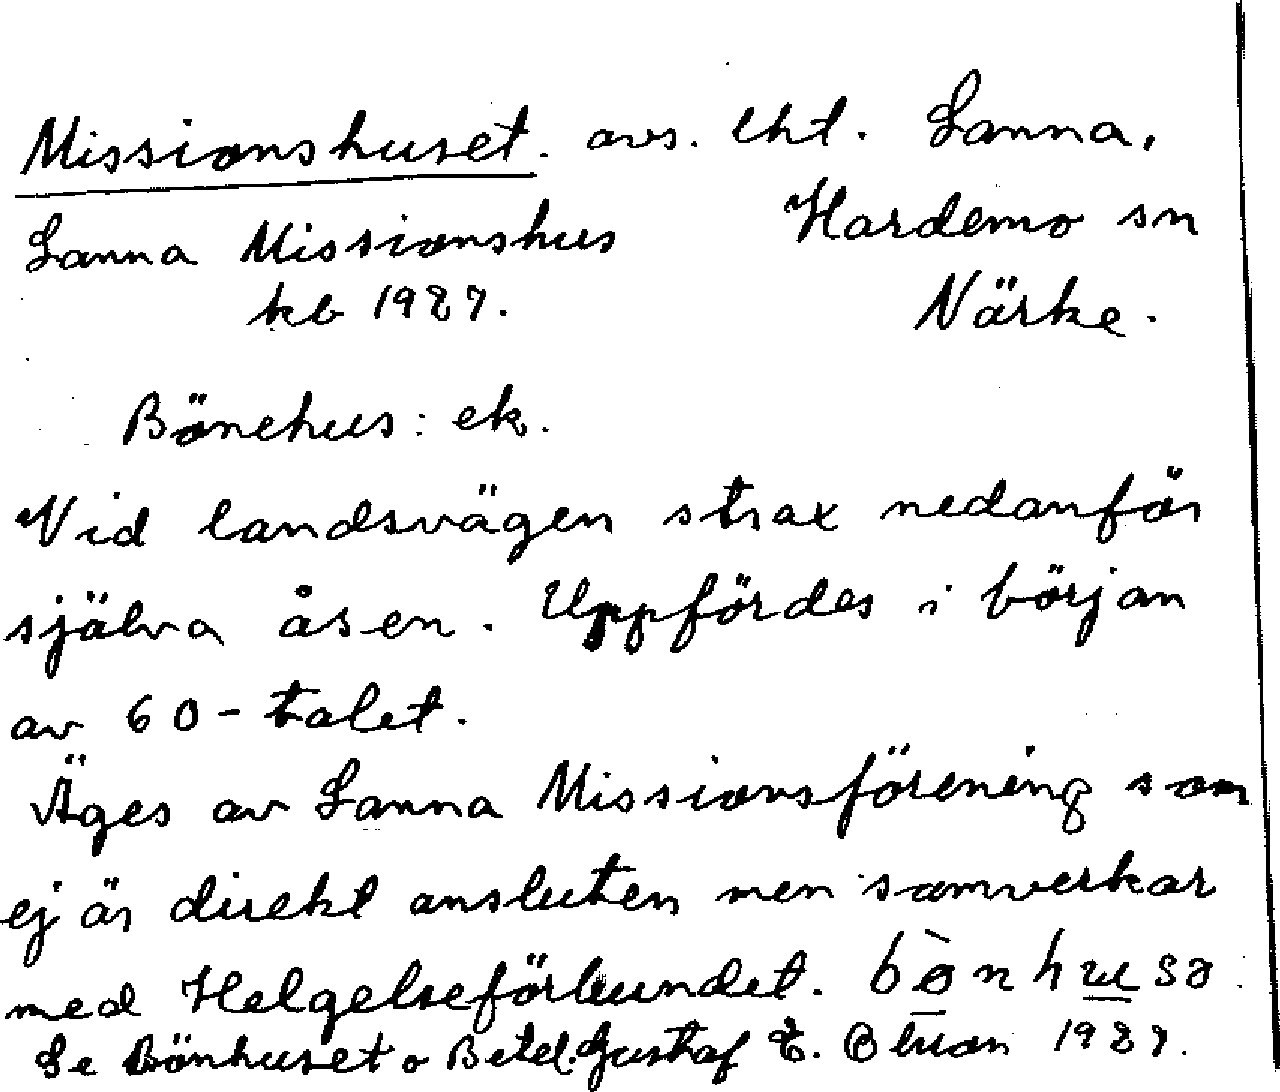 Missionshuset. avs. lht. Sanna,
Hardemo sn
Sanna Missionshus
kb 1927.
Närke.
Bönehus: ek.
Vid landsvägen strax nedanför
själva åsen. Uppfördes i början
av 60-talet.
Äges av Sanna Missionsförening som
ej är direkt ansluten men samverkar
med Helgelseförbundet.
Se Bönhuset o Betel. Gustaf E. 1927.